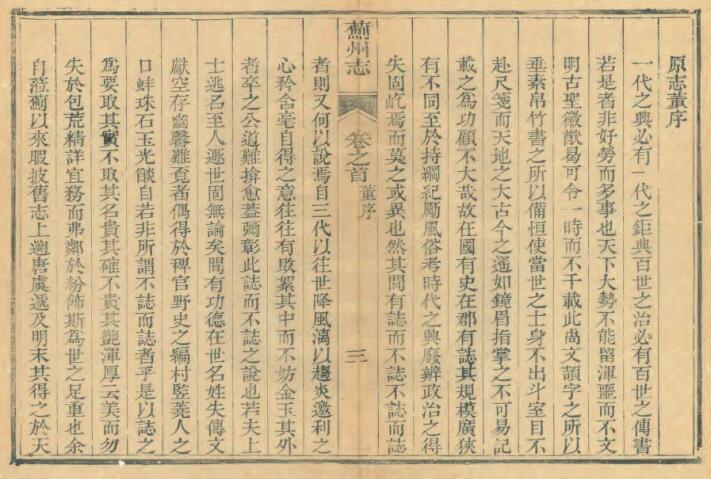 原志董序
一代之興必有一代之鉅典百世之治必有百世之傳書
若是者非好勞而多事也天下大勢不能留渾噩而不文
明古聖徽猷曷可令一時而不千載此尚文頡字之所以
垂素帛竹書之所以備恒使當世之士身不出斗室目不
赴尺箋而天地之大古今之遥如鏡眉指掌之不可易記
載之為功顧不大哉故在國有史在郡有誌其規模廣狹
有不同至於持綱紀勵風俗考時代之興廢辨政治之得
失固屹焉而莫之或異也然其間有誌而不誌不誌而誌
薊州志
卷之首
董序
三
者則又何以說焉自三代以往世降風漓以趨炎邀利之
心矜含毫自得之意往往有敗絮其中而不妨金玉其外
者卒之公道難揜愈蓋彌彰此誌而不誌之說也若夫上
士逃名至人遯世固無論矣間有功德在世名姓失傳文
獻空存幽馨難覓者偶得於稗官野史之編村豎蕘人之
口蚌珠石玉光燄自若非所謂不誌而誌者乎是以誌之
為要取其實不取其名貴其確不貴其艷渾厚云美而勿
失於包荒精詳宜務而弗鄰於粉飾斯為世之足重也余
自蒞薊以來暇披舊志上遡唐虞遞及明末其得之於天